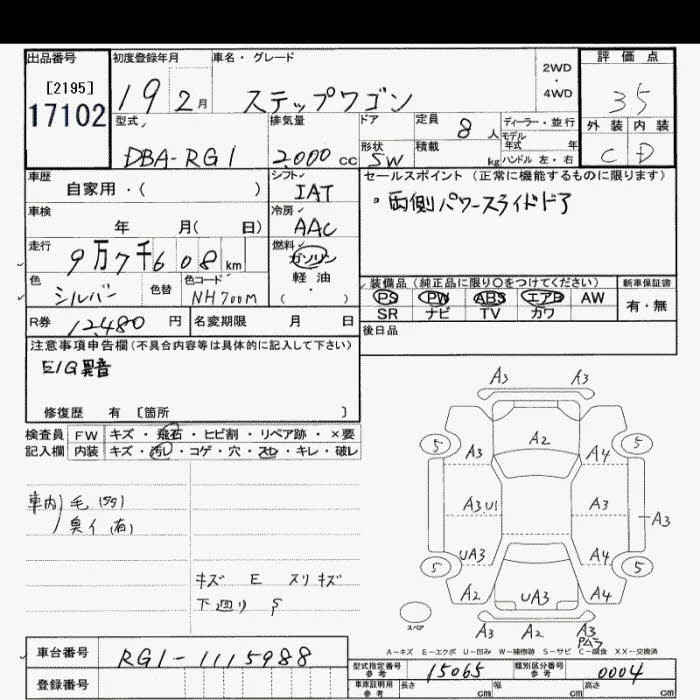 出品番号 初度登録年月 車名・グレード 2WD・4WD 評価点
[2195] 17102 19 2月 ステップワゴン 35
型式 排気量 ドア 定員 8人 ディーラー・並行 外装 内装
モデル年式 年
DBA-RG1 2000cc 形状 SW 積載 kg ハンドル 左・右 C D
車歴 シフト セールスポイント (正常に機能するものに限ります)
自家用・( ) IAT
・両側パワースライドドア
車検 冷房
年 月( 日) AAC
走行 燃料
9万7千608km ガソリン
装備品(純正品に限り○をつけてください) 新車保証書
色 色替 色コード 軽油
シルバー NH700M ・( )
PS PW ABS エアB AW 有・無
SR ナビ TV カワ
R券 12,480円 名変期限 月 日
後日品
注意事項申告欄(不具合内容等は具体的に記入して下さい)
E/G異音
修復歴 有 [箇所 ]
検査員 FW キズ・飛石・ヒビ割・リペア跡・×要
記入欄 内装 キズ・汚レ・コゲ・穴・スレ・キレ・破レ
車内 毛
臭イ(有)
キズ E スリキズ
下廻り S
A3 A3
5 A2 5
A3 A4
A3U1 A3 A3
UA3 A4
5 5
A2 UA3 A4
スペア
A3 A2 A3
A-キズ E-エクボ U-凹み W-補修跡 S-サビ C-腐食 XX-交換済
車台番号 RG1-1115988
型式指定番号 参考 15065 類別区分番号 参考 0004
登録番号
車庫証明用 参考 長さ cm 幅 cm 高さ cm